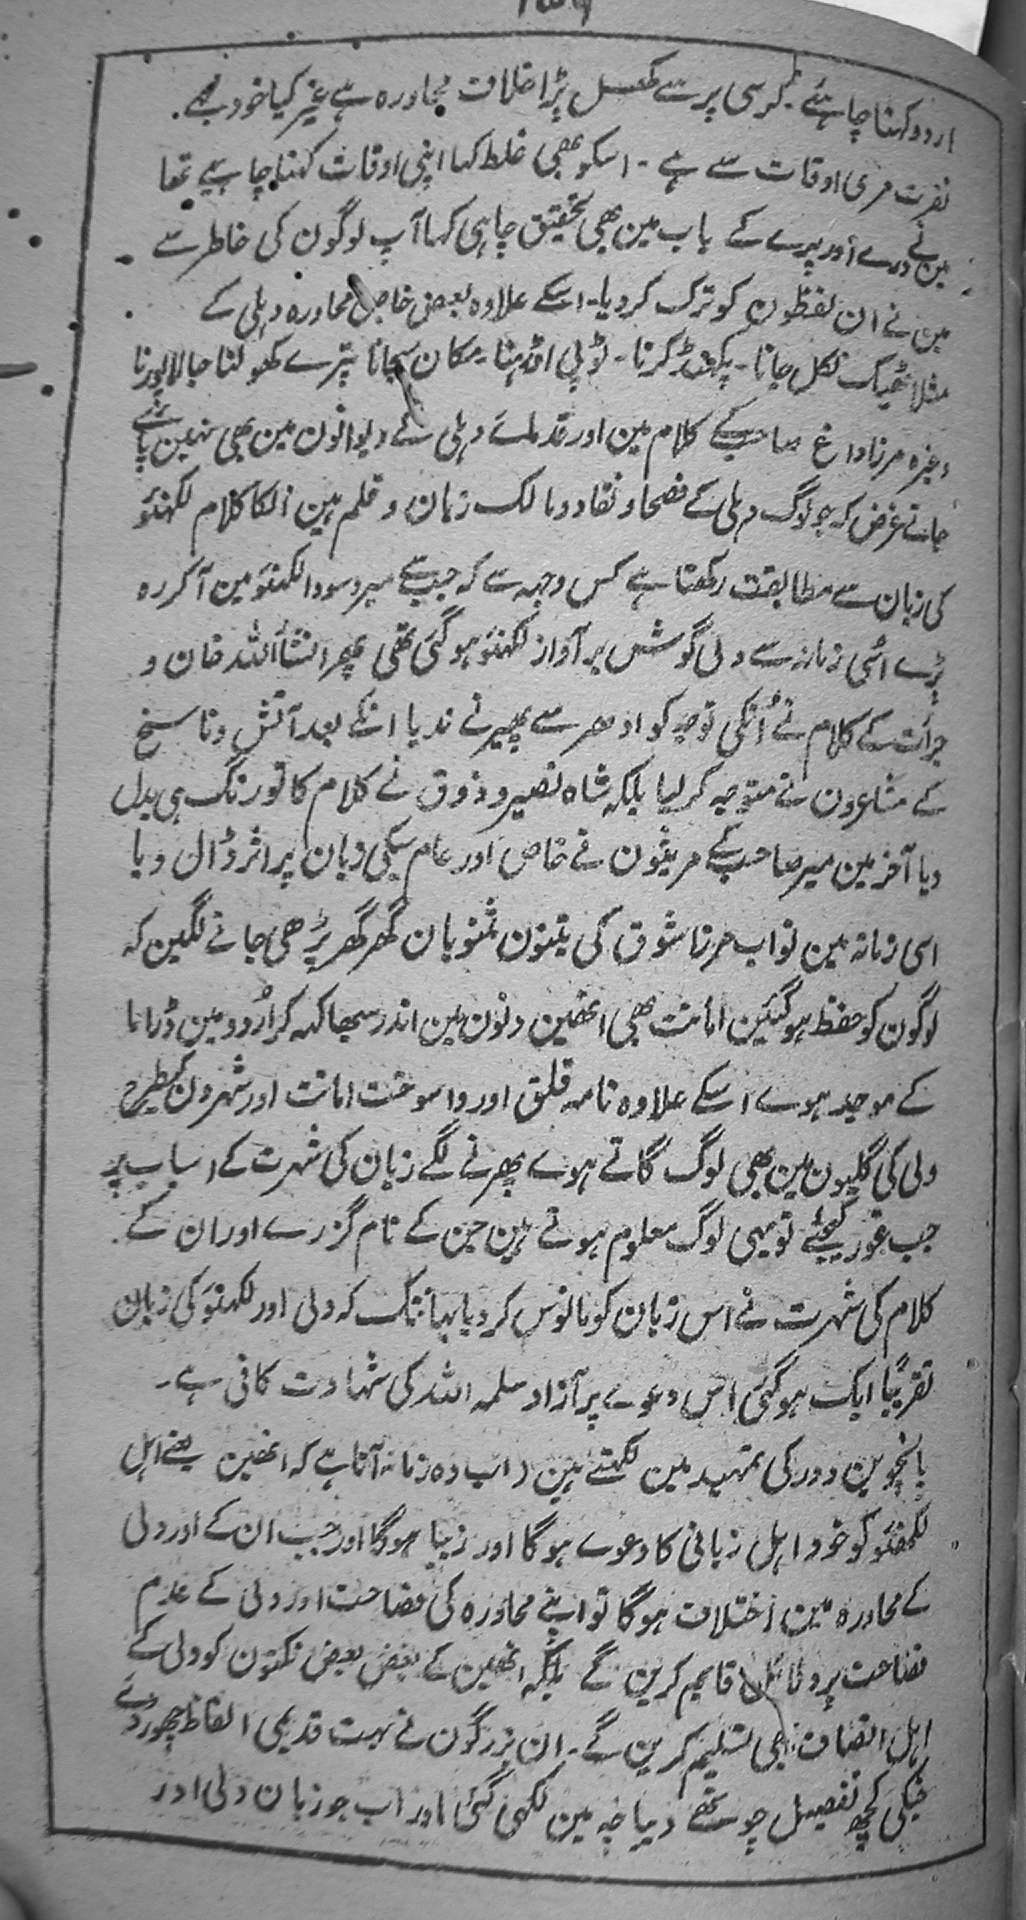 اردو کہنا چاہئے کرسی پر سے کھسل پڑا خلاف محاورہ ہے غیر کیا خود مجھے
نفرت مری اوقات سے ہے ۔ اسکو بھی غلط کہا اپنی اوقات کہنا چاہیے تھا
مین نے ورے اور پرے کے باب مین بھی تحقیق چاہی کہا آپ لوگون کی خاطر سے
مین نے ان لفظون کو ترک کر دیا ۔ اسکے علاوہ بعض خاص محاورہ دہلی کے
مثلا ٹھیک نکل جانا ۔ پکھنڈ کرنا ۔ ٹوپی اڈہنا ۔ مکان سجانا پترے کھولنا جالا پورنا
وغیرہ مرزا داغ صاحب کے کلام مین اور قدماے دہلی کے دیوانون مین بھی نہین پاے
جاتے غرض کہ جو لوگ دہلی کے فصحا و نقاد و مالک زبان و قلم ہین انکا کلام لکھنؤ
کی زبان سے مطابقت رکھتا ہے کس وجہہ سے کہ جب سے میر و سودا لکھنؤ مین آکر رہ
پڑے اسی زمانہ سے دلی گوشش بر آواز لکھنؤ ہو گئی تھی پھر انشأ اللہ خان و
جرأت کے کلام نے اُنکی توجہ کو ادھر سے پھیرنے ندیا انکے بعد آتش و ناسخ
کے مشاعرون نے متوجہ کر لیا بلکہ شاہ نصیر و ذوق نے کلام کا تو رنگ ہی بدل
دیا آخر مین میر صاحب کے مرثیون نے خاص اور عام سبکی زبان پر اثر ڈال دیا
اسی زمانہ مین نواب مرزا شوق کی تینون مثنویان گھر گھر پڑھی جانے لگین کہ
لوگون کو حفظ ہو گئین امانت بھی انھین دنون مین اندر سبھا کہہ کر اُردو مین ڈراما
کے موجد ہوے اسکے علاوہ نامہ قلق اور واسوخت امانت اور شہرون کیطرح
دلی کی گلیون مین بھی لوگ گاتے ہوے پھرنے لگے زبان کی شہرت کے اسباب پر
جب غور کیجئے تو یہی لوگ معلوم ہوتے ہین جن کے نام گزرے اور ان کے
کلام کی شہرت نے اس زبان کو مانوس کر دیا یہانتک کہ دلی اور لکھنؤ کی زبان
تقریبًا ایک ہو گئی اس دعوے پر آزاد سلمہ اللہ کی شہادت کافی ہے ۔
پانچوین دور کی تمہید مین لکھتے ہین (اب وہ زمانہ آتا ہے کہ انھین یعنے اہل
لکھنؤ کو خود اہل زبانی کا دعوے ہوگا اور زیبا ہوگا اور جب ان کے اور دلی
کے محاورہ مین اختلاف ہوگا تو اپنے محاورہ کی فصاحت اور دلی کے عدم
فصاحت پر دلائل قایم کرین گے بلکہ انھین کے بعض بعض نکتون کو دلی کے
اہل انصاف بھی تسلیم کرین گے ۔ ان بزرگون نے بہت قدیمی الفاظ چھوڑ دئے
جنکی کچھ تفصیل چوتھے دیباچہ مین لکھی گئی اور اب جو زبان دلی اور